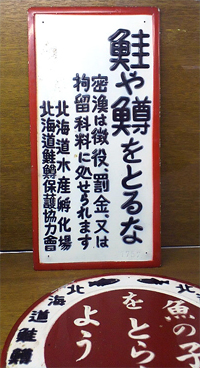 鮭や鱒をとるな
密漁は徴役、罰金、又は
拘留科料に処せられます
北海道水産孵化場
北海道鮭鱒保護協力會
魚の子
をとら
よう
北海道鮭鱒